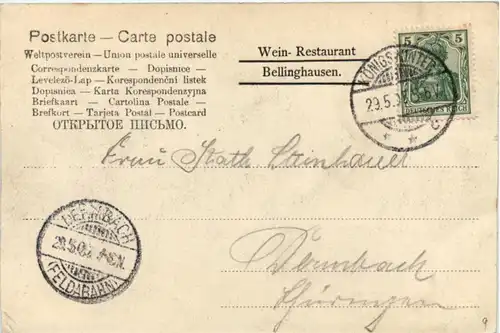 Postkarte — Carte postale
Weltpostverein — Union postale universelle
Correspondenzkarte — Dopisnice —
Levelező-Lap — Korespondenční listek
Dopisnica — Karta Korespondenzyjna
Briefkaart — Cartolina Postale —
Brefkort — Tarjeta Postal — Postcard
ОТКРЫТОЕ ПИСЬМО.
Wein- Restaurant
Bellinghausen.
5 5
DEUTSCHES REICH
KÖNIGSWINTER
29.5.
Frau
Dermbach
Thüringen
DERMBACH
(FELDABAHN)